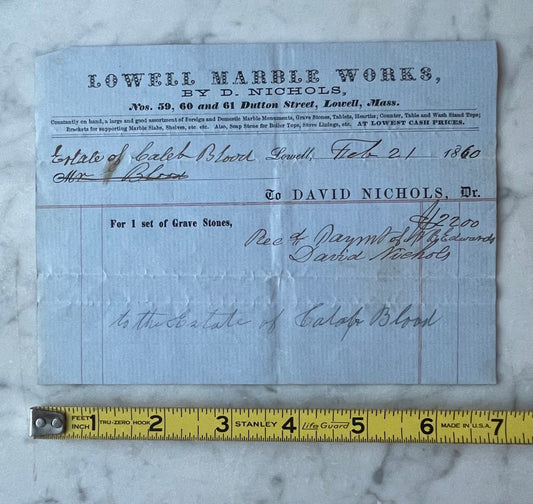 LOWELL MARBLE WORKS,
BY D. NICHOLS,
Nos. 59, 60 and 61 Dutton Street, Lowell, Mass.
Constantly on hand, a large and good assortment of Foreign and Domestic Marble Monuments, Grave Stones, Tablets, Hearths; Counter, Table and Wash Stand Tops;
Brackets for supporting Marble Slabs, Shelves, etc. etc. Also, Soap Stone for Boiler Tops, Stove Linings, etc. AT LOWEST CASH PRICES.
Estate of Caleb Blood Lowell, Feb 21 1860
Mr Blood
To DAVID NICHOLS, Dr.
For 1 set of Grave Stones, $22.00
Rec d Paymt of Edwards
David Nichols
to the Estate of Caleb Blood
FEET INCH 1 TRU-ZERO HOOK 2 3 STANLEY 4 Life Guard 5 6 MADE IN U.S.A. 7